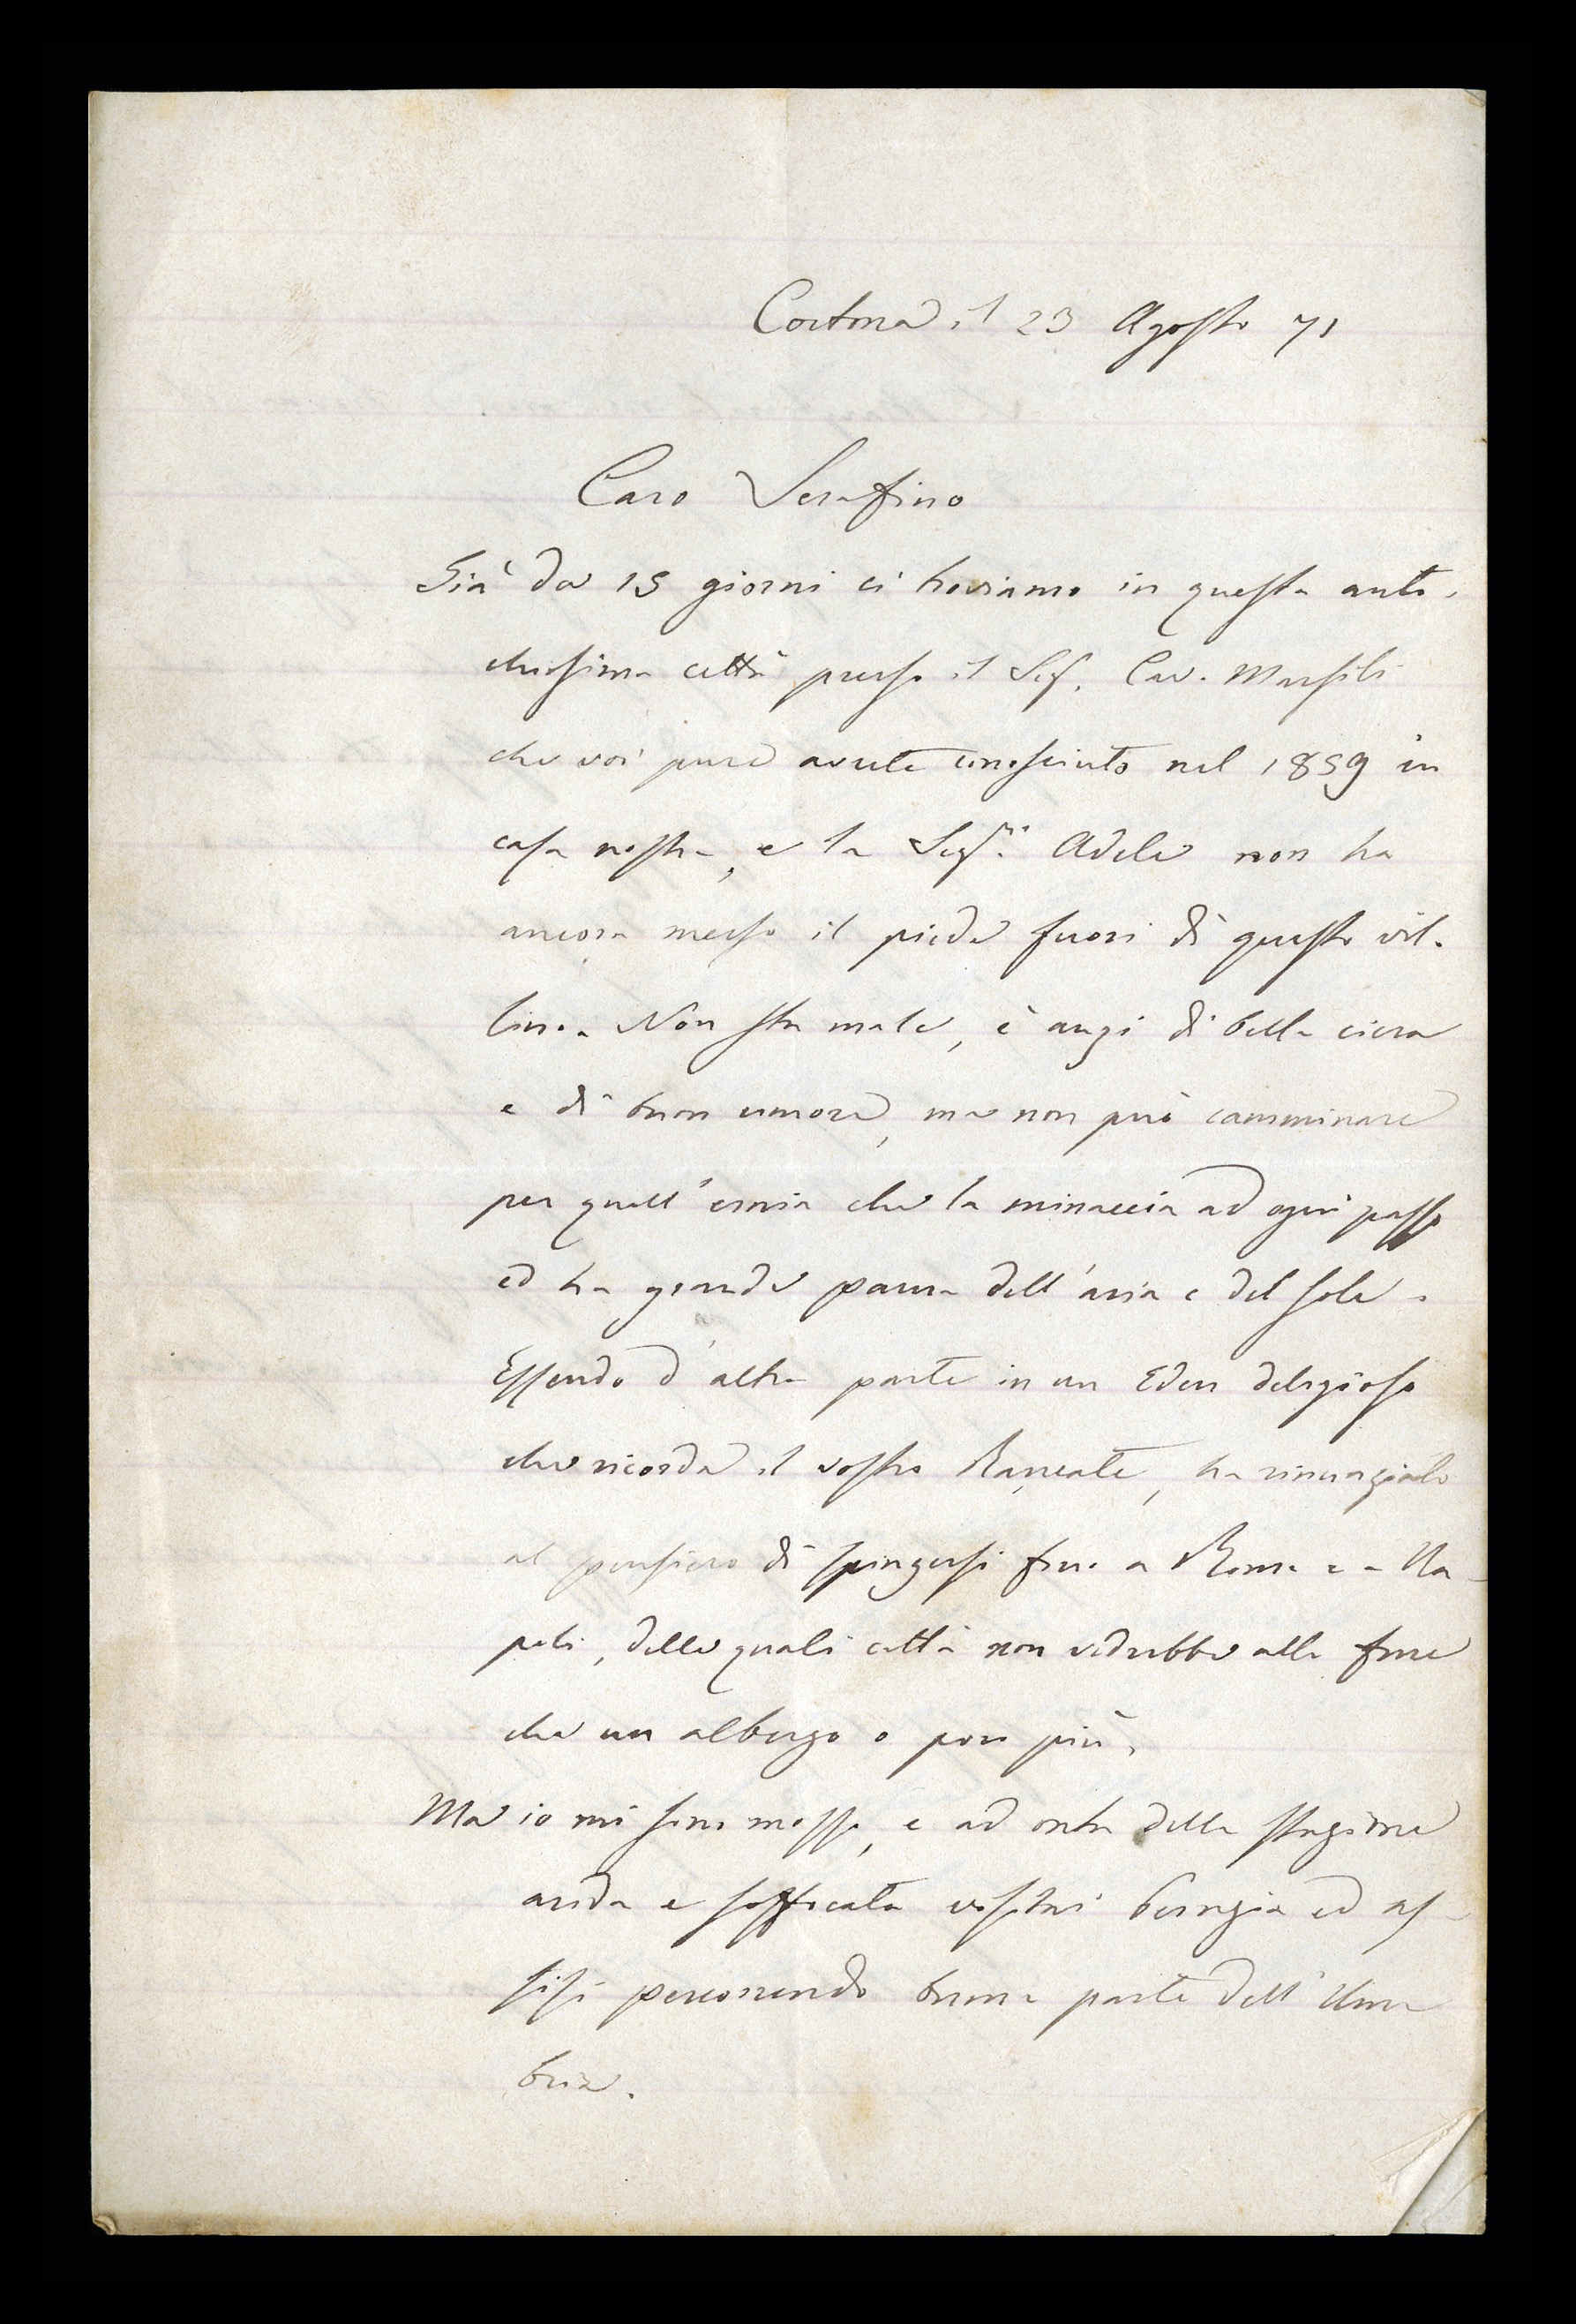 Cortona il 23 Agosto 71
Caro Serafino
Già da 15 giorni ci troviamo in questa anti-
chissima città presso il Sig. Cav. Marsili
che voi pure avete conosciuto nel 1859 in
casa nostra, e la Sigra Adele non ha
ancora messo il piede fuori di questo vil-
lino. Non sta male, è anzi di bella ciera
e di buon umore, ma non può camminare
per quell'ernia che la minaccia ad ogni passo
ed ha grande paura dell'aria e del sole.
Essendo d'altra parte in un Eden delizioso
che ricorda il vostro Rancate, ha rinunziato
al pensiero di spingersi fino a Roma e a Na-
poli, delle quali città non vedrebbe alla fine
che un albergo o poco più.
Ma io mi sono mosso, e ad onta della stagione
arida e soffocata visitai Perugia ed As-
sisi percorrendo buona parte dell'Um
bria.